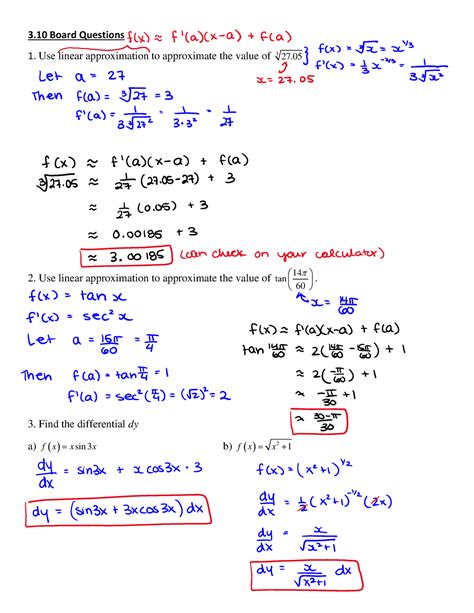 3.10 Board Questions f(x) ≈ f'(a)(x-a) + f(a)
1. Use linear approximation to approximate the value of ∛27.05 } f(x) = ∛x = x^(1/3)
f'(x) = 1/3 x^(-2/3) = 1/(3∛x²)
x = 27.05
Let a = 27
Then f(a) = ∛27 = 3
f'(a) = 1/(3∛27²) = 1/(3·3²) = 1/27
f(x) ≈ f'(a)(x-a) + f(a)
∛27.05 ≈ 1/27 (27.05-27) + 3
≈ 1/27 (0.05) + 3
≈ 0.00185 + 3
≈ 3.00185 (can check on your calculator)
2. Use linear approximation to approximate the value of tan(14π/60).
x = 14π/60
f(x) = tan x
f'(x) = sec² x
Let a = 15π/60 = π/4
Then f(a) = tan π/4 = 1
f'(a) = sec²(π/4) = (√2)² = 2
f(x) ≈ f'(a)(x-a) + f(a)
tan 14π/60 ≈ 2(14π/60 - 15π/60) + 1
≈ 2(-π/60) + 1
≈ -π/30 + 1
≈ (30-π)/30
3. Find the differential dy
a) f(x) = x sin 3x
dy/dx = sin3x + x cos3x · 3
dy = (sin3x + 3x cos3x) dx
b) f(x) = √(x²+1)
f(x) = (x²+1)^(1/2)
dy/dx = 1/2 (x²+1)^(-1/2) (2x)
dy/dx = x/√(x²+1)
dy = x/√(x²+1) dx